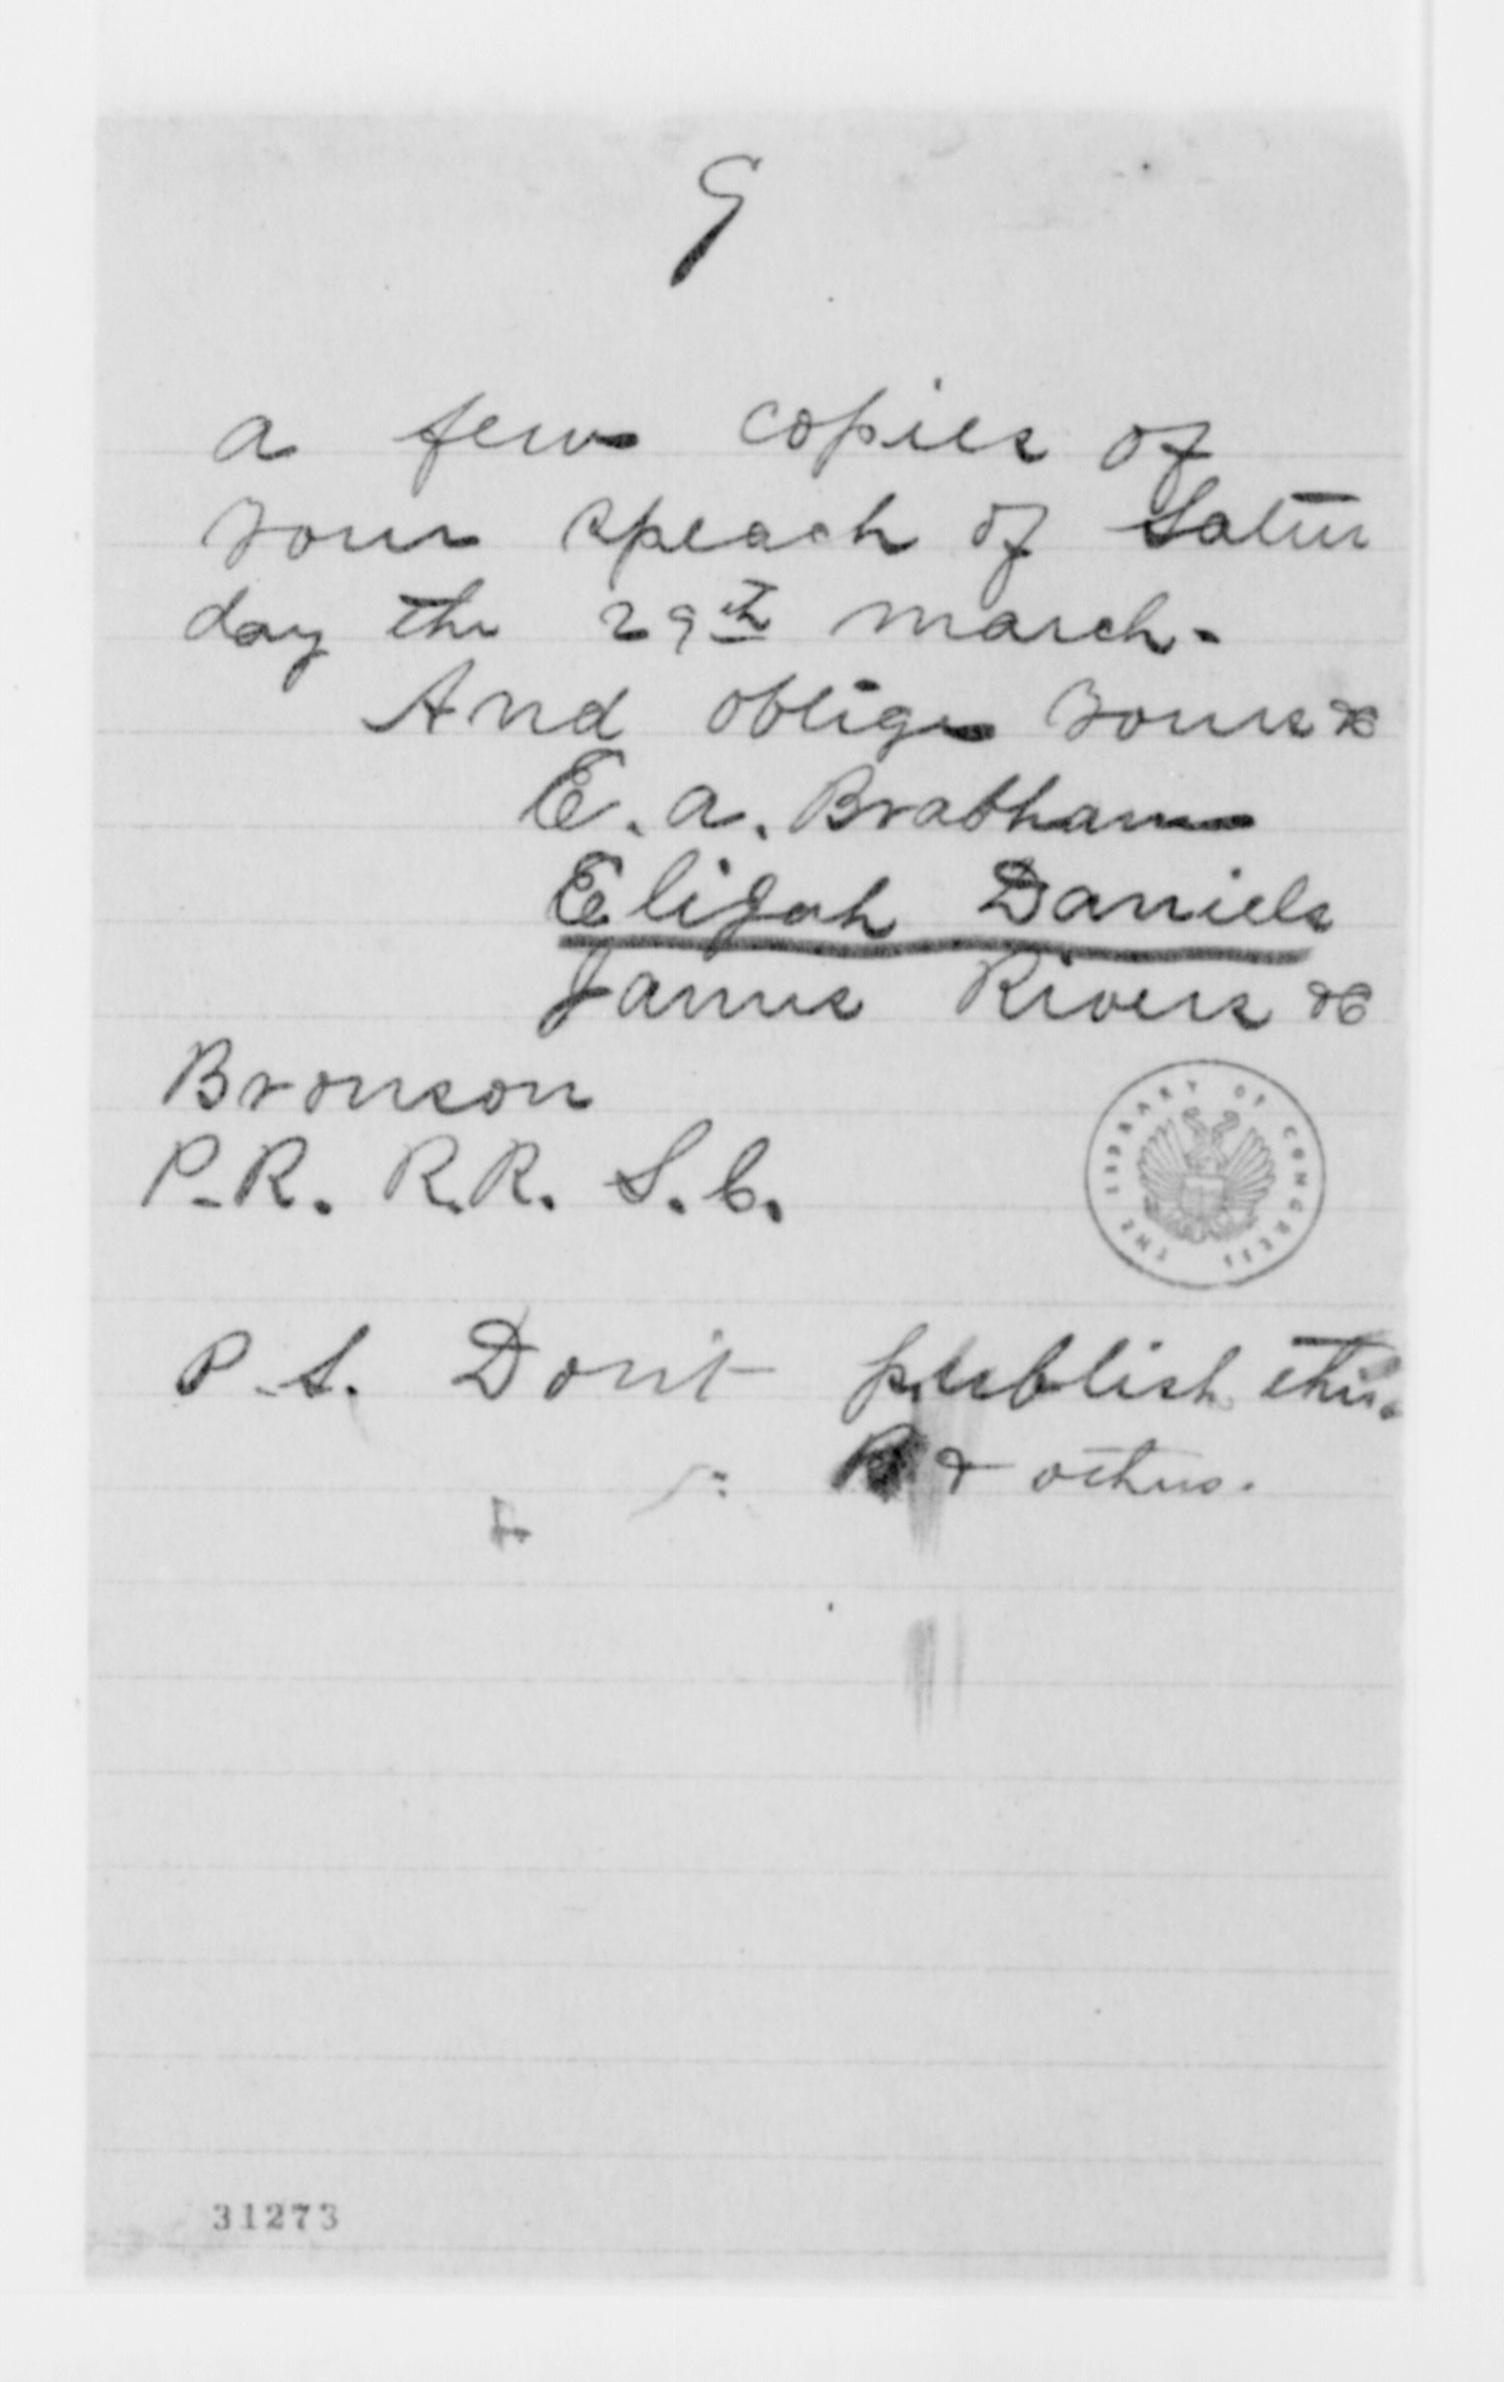 9
a few copies of
your speach of Satur
day the 29th march-
And oblige yours &c
E. A. Brabham
Elijah Daniels
James Rivers &c
Bronson
P.R. R.R. S.C.
THE LIBRARY OF CONGRESS
P.S. Don't publish this.
& others.
31273